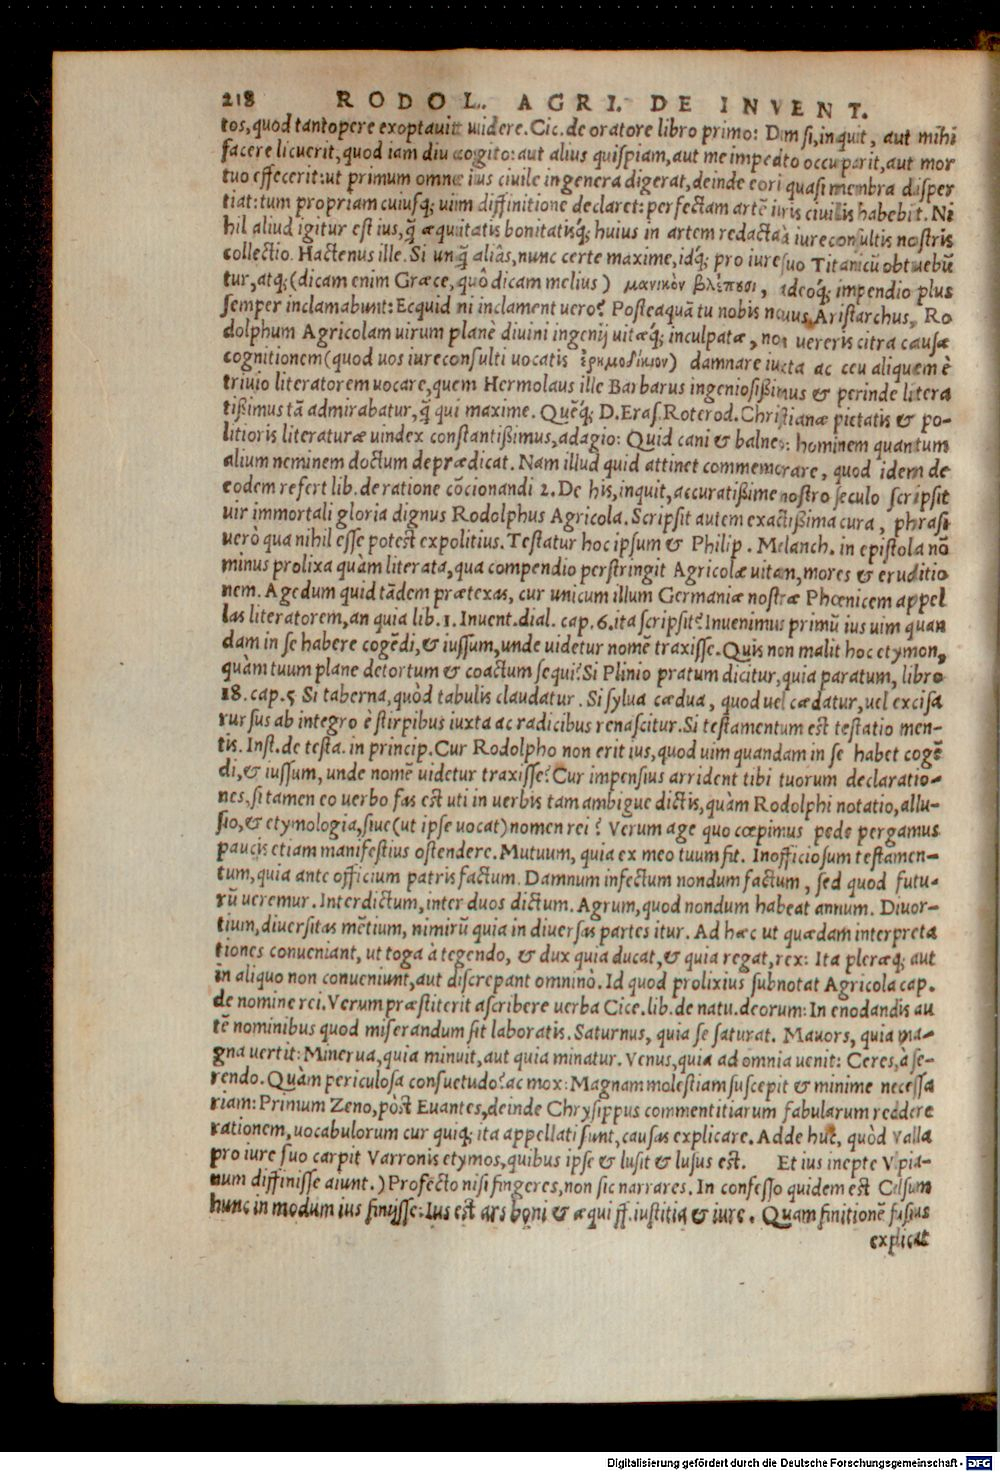 218 RODOL. AGRI. DE INVENT.
tos, quod tantopere exoptauit uidere. Cic. de oratore libro primo: Dum si, inquit, aut mihi
facere licuerit, quod iam diu cogito: aut alius quispiam, aut me impedito occuparit, aut mor
tuo effecerit: ut primum omne ius ciuile in genera digerat, deinde eorū quasi membra disper
tiat: tum propriam cuiusq; uim diffinitione declaret: perfectam artē iuris ciuilis habebit. Ni
hil aliud igitur est ius, q̃ æquitatis bonitatisq; huius in artem redacta à iureconsultis nostris
collectio. Hactenus ille. Si unq̃ aliâs, nunc certe maxime, idq; pro iure suo Titanicū obtuebū
tur, atq; (dicam enim Græce, quô dicam melius) μανικὸν βλέπουσι, adeoq; impendio plus
semper inclamabunt: Ecquid ni inclament uero? Posteaquā tu nobis nouus Aristarchus, Ro
dolphum Agricolam uirum planè diuini ingenij uitæq; inculpatæ, non uereris citra causæ
cognitionem (quod uos iureconsulti uocatis ἐρημοδίκιον) damnare iuxta ac ceu aliquem è
triuio literatorem uocare, quem Hermolaus ille Barbarus ingeniosißimus & perinde litera
tißimus tā admirabatur, q̃ qui maxime. Quēq; D. Eras. Roterod. Christianæ pietatis & po-
litioris literaturæ uindex constantißimus, adagio: Quid cani & balneo: hominem quantum
alium neminem doctum deprædicat. Nam illud quid attinet commemorare, quod idem de
eodem refert lib. de ratione cōcionandi 2. De his, inquit, accuratißime nostro seculo scripsit
uir immortali gloria dignus Rodolphus Agricola. Scripsit autem exactißima cura, phrasi
uerò qua nihil esse potest expolitius. Testatur hoc ipsum & Philip. Melanch. in epistola nō
minus prolixa quàm literata, qua compendio perstringit Agricolæ uitam, mores & eruditio
nem. Agedum quid tādem prætexas, cur unicum illum Germaniæ nostræ Phœnicem appel
las literatorem, an quia lib. 1. Inuent. dial. cap. 6. ita scripsit? Inuenimus primū ius uim quan
dam in se habere cogēdi, & iussum, unde uidetur nomē traxisse. Quis non malit hoc etymon,
quàm tuum plane detortum & coactum sequi? Si Plinio pratum dicitur, quia paratum, libro
18. cap. 5 Si taberna, quòd tabulis claudatur. Si sylua cædua, quod uel cædatur, uel excisa
rursus ab integro è stirpibus iuxta ac radicibus renascitur. Si testamentum est testatio men-
tis. Inst. de testa. in princip. Cur Rodolpho non erit ius, quod uim quandam in se habet cogē
di, & iussum, unde nomē uidetur traxisse? Cur impensius arrident tibi tuorum declaratio-
nes, si tamen eo uerbo fas est uti in uerbis tam ambigue dictis, quàm Rodolphi notatio, allu-
sio, & etymologia, siue (ut ipse uocat) nomen rei? Verum age quo cœpimus pede pergamus
paucis etiam manifestius ostendere. Mutuum, quia ex meo tuum fit. Inofficiosum testamen-
tum, quia ante officium patris factum. Damnum infectum nondum factum, sed quod futu-
rū ueremur. Interdictum, inter duos dictum. Agrum, quod nondum habeat annum. Diuor-
tium, diuersitas mētium, nimirū quia in diuersas partes itur. Ad hæc ut quædam interpreta
tiones conueniant, ut toga à tegendo, & dux quia ducat, & quia regat, rex: Ita pleræq; aut
in aliquo non conueniunt, aut discrepant omninò. Id quod prolixius subnotat Agricola cap.
de nomine rei. Verum præstiterit ascribere uerba Cice. lib. de natu. deorum: In enodandis au
tē nominibus quod miserandum sit laboratis. Saturnus, quia se saturat. Mauors, quia ma-
gna uertit: Minerua, quia minuit, aut quia minatur. Venus, quia ad omnia uenit: Ceres, à se-
rendo. Quàm periculosa consuetudo? ac mox: Magnam molestiam suscepit & minime necessa
riam: Primum Zeno, pòst Euantes, deinde Chrysippus commentitiarum fabularum reddere
rationem, uocabulorum cur quiq; ita appellati sunt, causas explicare. Adde huc, quòd Valla
pro iure suo carpit Varronis etymos, quibus ipse & lusit & lusus est. Et ius inepte Vlpia-
num diffinisse aiunt.) Profecto nisi fingeres, non sic narrares. In confesso quidem est Celsum
hunc in modum ius finijsse: Ius est ars boni & æqui ff. iustitia & iure. Quam finitionē fusius
explicat
Digitalisierung gefördert durch die Deutsche Forschungsgemeinschaft - DFG